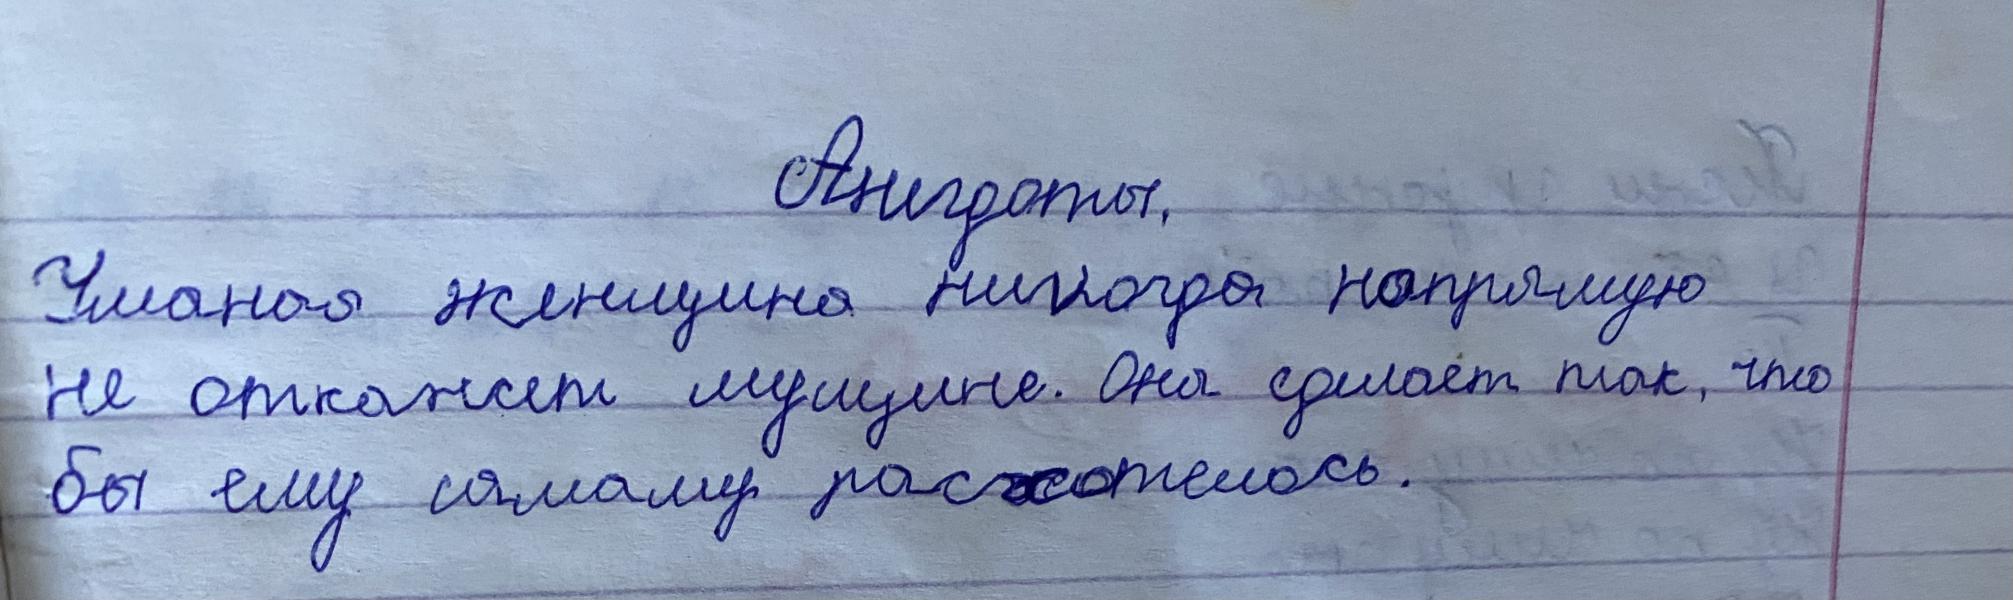 Анигдоты.
Уманая женщина никогда напрямую
не откажет мущине. Она сделает так, что
бы ему самаму расхотелось.